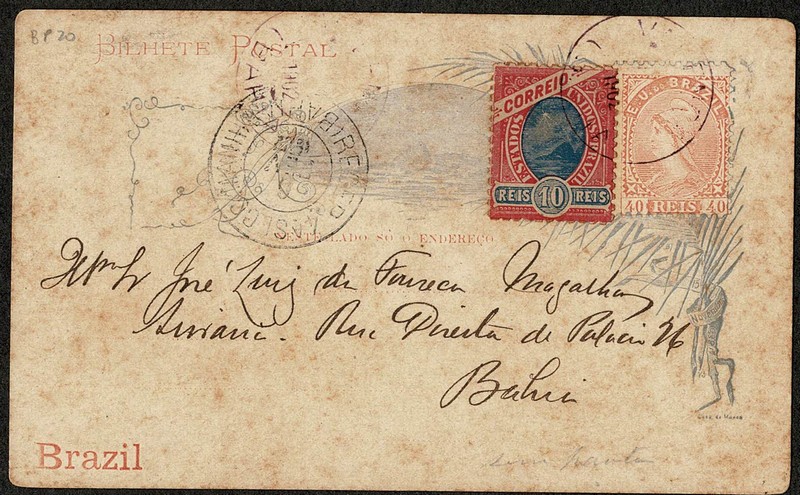 BP 20
BILHETE POSTAL
CORREIO
ESTADOS UNIDOS BRAZIL
REIS 10 REIS
E. U. DO BRAZIL
40 REIS 40
1902
N'ESTE LADO SÓ O ENDEREÇO
José Luiz da Fonseca Magalhães
Livraria. Rua Direita de Palacio 26
Bahia
Brazil